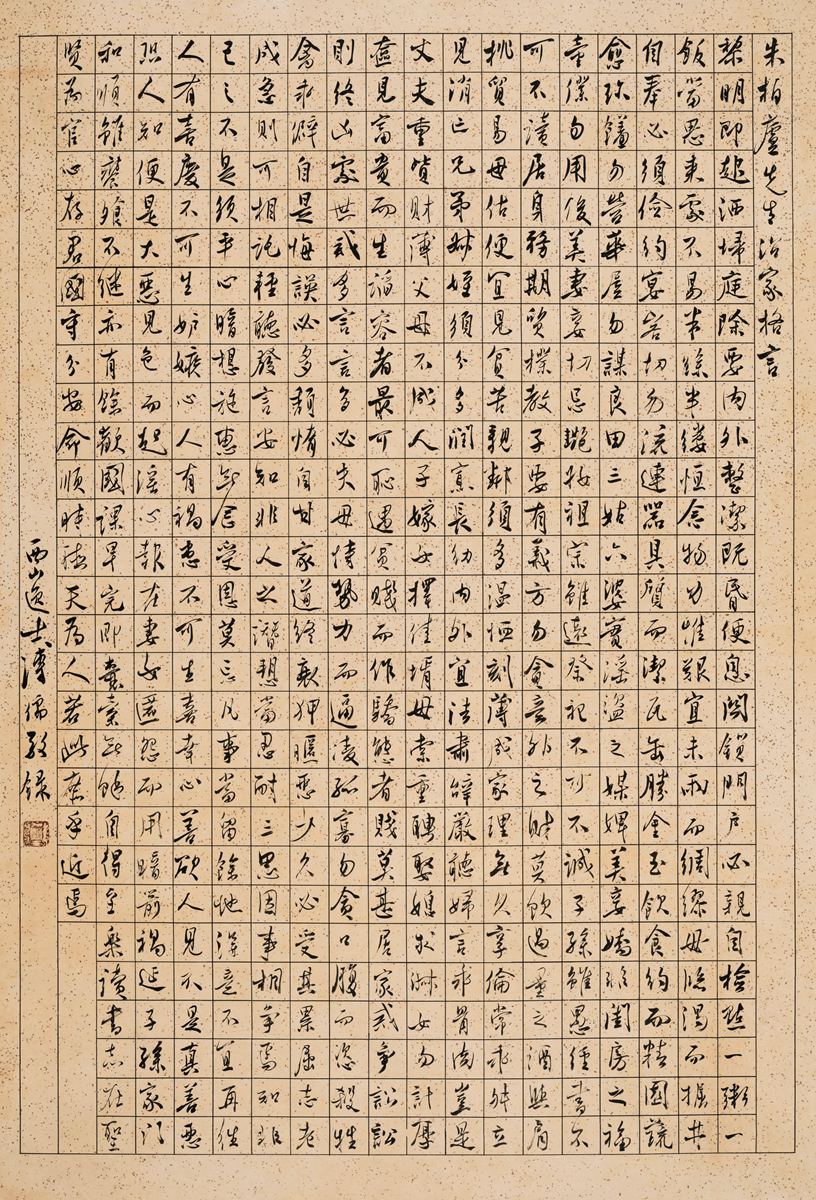 朱柏廬先生治家格言
黎明即起洒埽庭除要內外整潔既昏便息關鎖門戶必親自檢點一粥一
飯當思來處不易半絲半縷恒念物力惟艱宜未雨而綢繆毋臨渴而掘井
自奉必須儉約宴客切勿流連器具質而潔瓦缶勝金玉飲食約而精園蔬
愈珍饈勿營華屋勿謀良田三姑六婆實淫盜之媒婢美妾嬌非閨房之福
童僕勿用俊美妻妾切忌艷妝祖宗雖遠祭祀不可不誠子孫雖愚經書不
可不讀居身務期質樸教子要有義方勿貪意外之財莫飲過量之酒與肩
挑貿易毋佔便宜見貧苦親鄰須多溫恤刻薄成家理無久享倫常乖舛立
見消亡兄弟叔姪須分多潤寡長幼內外宜法肅辭嚴聽婦言乖骨肉豈是
丈夫重貲財薄父母不成人子嫁女擇佳壻毋索重聘娶媳求淑女勿計厚
奩見富貴而生諂容者最可恥遇貧賤而作驕態者賤莫甚居家戒爭訟訟
則終凶處世戒多言言多必失毋恃勢力而逼凌孤寡勿貪口腹而恣殺牲
禽乖僻自是悔誤必多頹惰自甘家道終衰狎暱惡少久必受其累屈志老
成急則可相託輕聽發言安知非人之譖愬當忍耐三思因事相爭焉知非
己之不是須平心暗想施惠無念受恩莫忘凡事當留餘地得意不宜再往
人有喜慶不可生妒嫉心人有禍患不可生喜幸心善欲人見不是真善惡
恐人知便是大惡見色而起淫心報在妻女匿怨而用暗箭禍延子孫家門
和順雖饔飧不繼亦有餘歡國課早完即囊橐無餘自得至樂讀書志在聖
賢為官心存君國守分安命順時聽天為人若此庶乎近焉
西山逸士溥儒敬錄